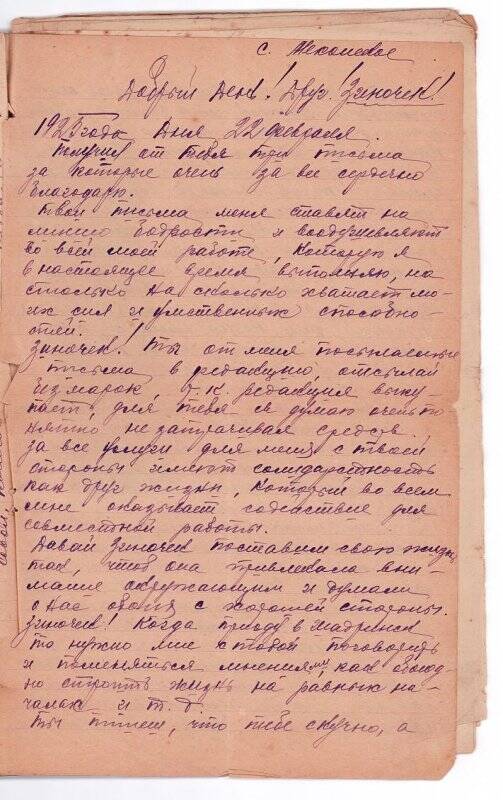 с.
Добрый День! Друг! Зиночек!
192 года Дня 22 февраля.
Получил от тебя три письма
за которые очень за все сердечно
благодарю.
Твои письма меня ставят на
линию бодрости и воодушевляют
во всей моей работе, которую я
в настоящее время выполняю, на
столько на сколько хватает мо-
их сил и умственных способно-
стей.
Зиночек! Ты от меня посылаемые
письма в редакцию, отсылай
без марок, т.к. редакция выку
пает, для тебя я думаю очень по
нятно не затрачивая средств.
за все услуги для меня с твоей
стороны имеют солидарстность
как друг жизни, который во всем
мне оказывает содействие для
совместной работы.
Давай Зиночек поставим свою жизнь
так, чтоб она привлекала вни-
мание окружающим и думали
о нас с хорошей стороны.
Зиночек! Когда приеду в Шадринск
то нужно мне с тобой поговорить
и поменяться мнениями, как
но строить жизнь на равных на-
чалах и т.д.
Ты пишеш, что тебе скучно, а